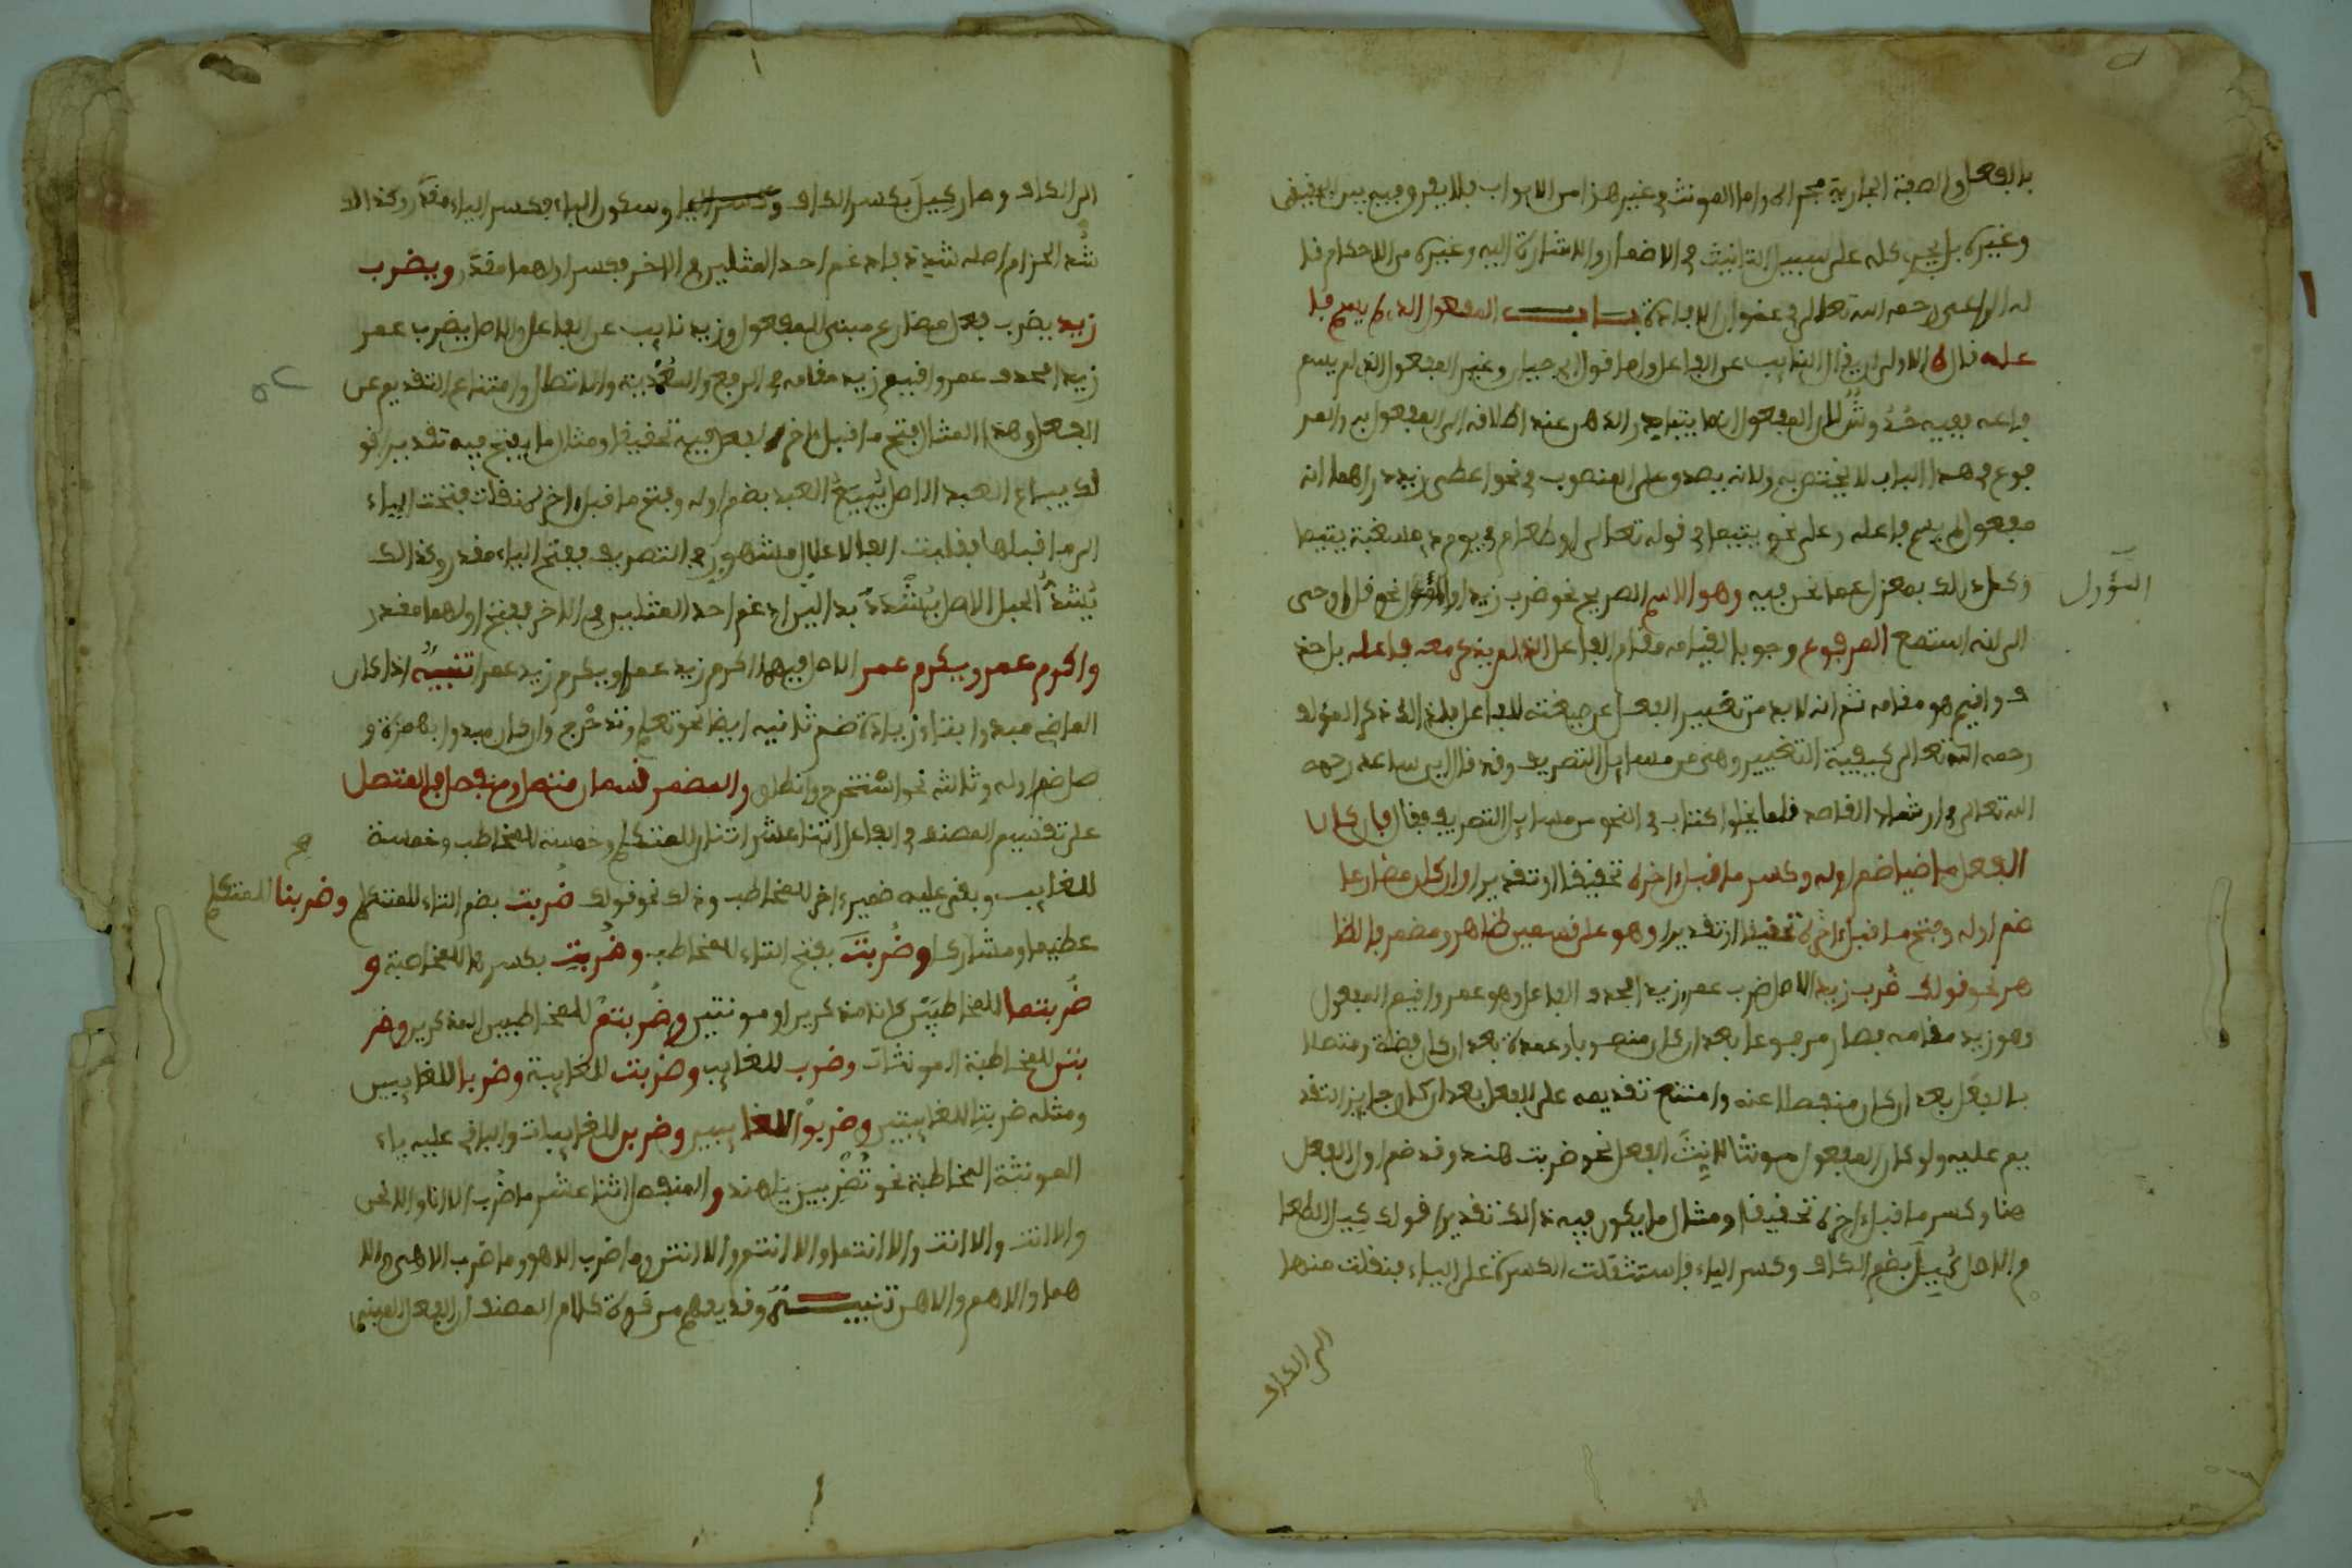 بالفعل والصفة الجارية مجراه واما المونث في غير هذا من الابواب فلا يفرق فيه بين الحقيقي
وغيره بل يجري كله على سبيل التانيث في الاضمار والاشارة اليه وغيره من الاحكام قا
له الراعي رحمه الله تعالى في عنوان الافادة باب المفعول الذي لم يسم فا
عله قال الاولى ان يقال النايب عن الفاعل واما قول ابي حيان وغير المفعول الذي لم يسم
فاعله ففيه لان المفعول انما يتبادر الذهن عند اطلاقه الى المفعول به والمر
فوع في هذا الباب لا يختص به ولانه يصدق على المنصوب في نحو اعطي زيد دراهما انه
مفعول لم يسم فاعله وعلى نحو يتيما في قوله تعالى او طعام في يوم ذي مسغبة يتيما
وكل ذلك بمعزل عما نحن فيه وهو الاسم الصريح نحو ضرب زيد او نحو قل اوحي
المؤول
الي انه استمع المرفوع وجوبا لقيامه مقام الفاعل الذي لم يذكر معه فاعله بل حذ
ف واقيم هو مقامه ثم انه لا بد من تغيير الفعل عن صيغته للفاعل فلذلك ذكر المؤلف
رحمه الله تعالى كيفية التغيير وهي من مسايل التصريف وقد قال ابن ساعد رحمه
الله تعالى في ارشاد القاصد قلما يخلوا كتاب في النحو من مسايل التصريف فقال فان كان
الفعل ماضيا ضم اوله وكسر ما قبل اخره تحقيقا او تقديرا وان كان مضارعا
ضم اوله وفتح ما قبل اخره تحقيقا او تقديرا وهو على قسمين ظاهر ومضمر فالظا
هر نحو قولك ضُرب زيد الاصل ضرب عمرو زيدا فحذف الفاعل وهو عمرو واقيم المفعول
وهو زيد مقامه فصار مرفوعا بعد ان كان منصوبا وعمدة بعد ان كان فضلة ومتصلا
بالفعل بعد ان كان منفصلا عنه وامتنع تقديمه على الفعل بعد ان كان جايز التقد
يم عليه ولو كان المفعول مونثا لانث الفعل نحو ضربت هند وقد ضم اول الفعل
هنا وكسر ما قبل اخره تحقيقا ومثال ما يكون فيه ذلك تقديرا قولك كيل الطعا
م الاصل كُيِلَ بضم الكاف وكسر الياء فاستثقلت الكسرة على الياء فنقلت منها
الى الكاف
الى الكاف وصار كِيلَ بكسر الكاف وسكون الياء فكسر الياء مقدر وكذلك
شُد الحزام اصله شدد فادغم احد المثلين في الاخر فكسر اولهما مقدر ويضرب
زيد يضرب فعل مضارع مبني للمفعول وزيد نايب عن الفاعل والاصل يضرب عمر
زيدا فحذف عمرو واقيم زيد مقامه في الرفع والعمدية والاتصال وامتناع التقديم عن
الفعل وهذا المثال فتح ما قبل اخر الفعل فيه تحقيقا ومثال ما يفتح فيه تقديرا قو
لك يباع العبد الاصل يُبيَعُ العبد بضم اوله وفتح ما قبل اخره نقلت فتحت الياء
الى ما قبلها فقلبت الفا لاعلال مشهور في التصريف ففتح الياء مقدر وكذلك
يُشدُّ الحبل الاصل يُشْدَدُ بدالين ادغم احد المثلين في الاخر ففتح اولهما مقدر
واكرم عمر ويكرم عمر الاصل فيهما اكرم زيد عمرا ويكرم زيد عمرا تنبيه اذا كان
الماضي مبدوا بتاء زيادة ضم ثانيه ايضا نحو تعلم وتدحرج وان كان مبدوا بهمزة و
صل ضم اوله وثالثه نحو استخرج وانطلق والمضمر قسمان متصل ومنفصل فالمتصل
على تقسيم المصنف في الفاعل اثنا عشر اثنان للمتكلم وخمسة للمخاطب وخمسة
للغايب وبقي عليه ضمير اخر للمخاطب وذلك نحو قولك ضُربت بضم التاء للمتكلم وضربنا للمتكلم
عظيما ومشاركا وضُربتَ بفتح التاء للمخاطب وضُربتِ بكسرها للمخاطبة و
ضُربتما للمخاطبَيْن كانا مذكرين او مونثين وضُربتم للمخاطبين المذكرين وضر
بتن للمخاطبة المونثات وضرب للغايب وضربت للغايبة وضربا للغايبين
ومثله ضربتا للغايبتين وضربوا للغايبين وضربن للغايبات والباقي عليه ياء
المونثة المخاطبة نحو تُضْرَبين يا هند والمنفصل اثنا عشر ما ضُرب الا انا والا نحن
والا انت والا انت والا انتما والا انتم والا انتن وما ضرب الا هو وما ضرب الا هي والا
هما والا هم والا هن تنبيه وقد يفهم من قوة كلام المصنف ان الفعل المبني